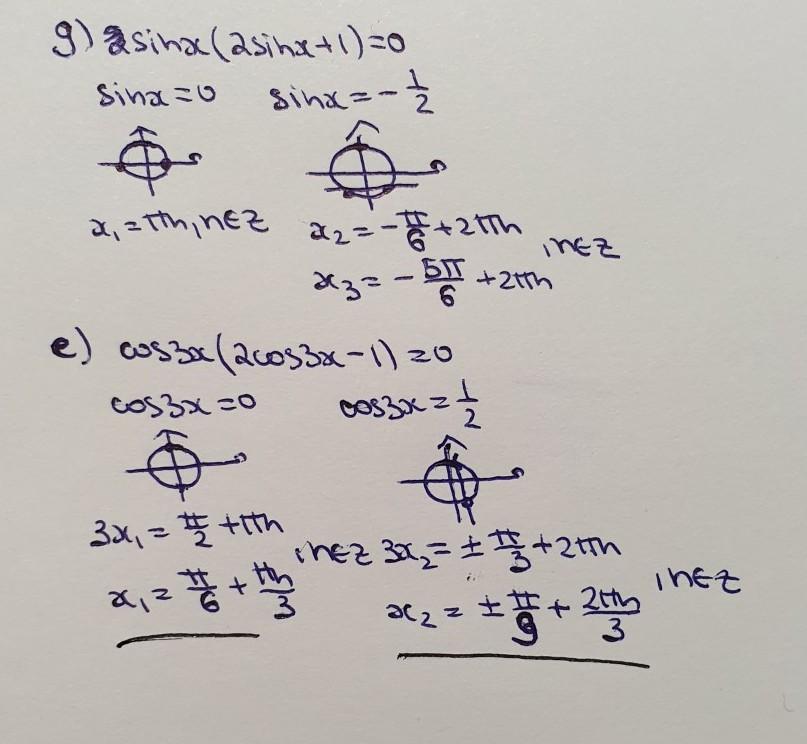 g) 2sinx(2sinx+1)=0
sinx=0 sinx=-1/2
x₁=πn, n∈Z x₂=-π/6+2πn
x₃=-5π/6+2πn, n∈Z
e) cos3x(2cos3x-1)=0
cos3x=0 cos3x=1/2
3x₁=π/2+πn 3x₂=±π/3+2πn
x₁=π/6+πn/3, n∈Z x₂=±π/9+2πn/3, n∈Z